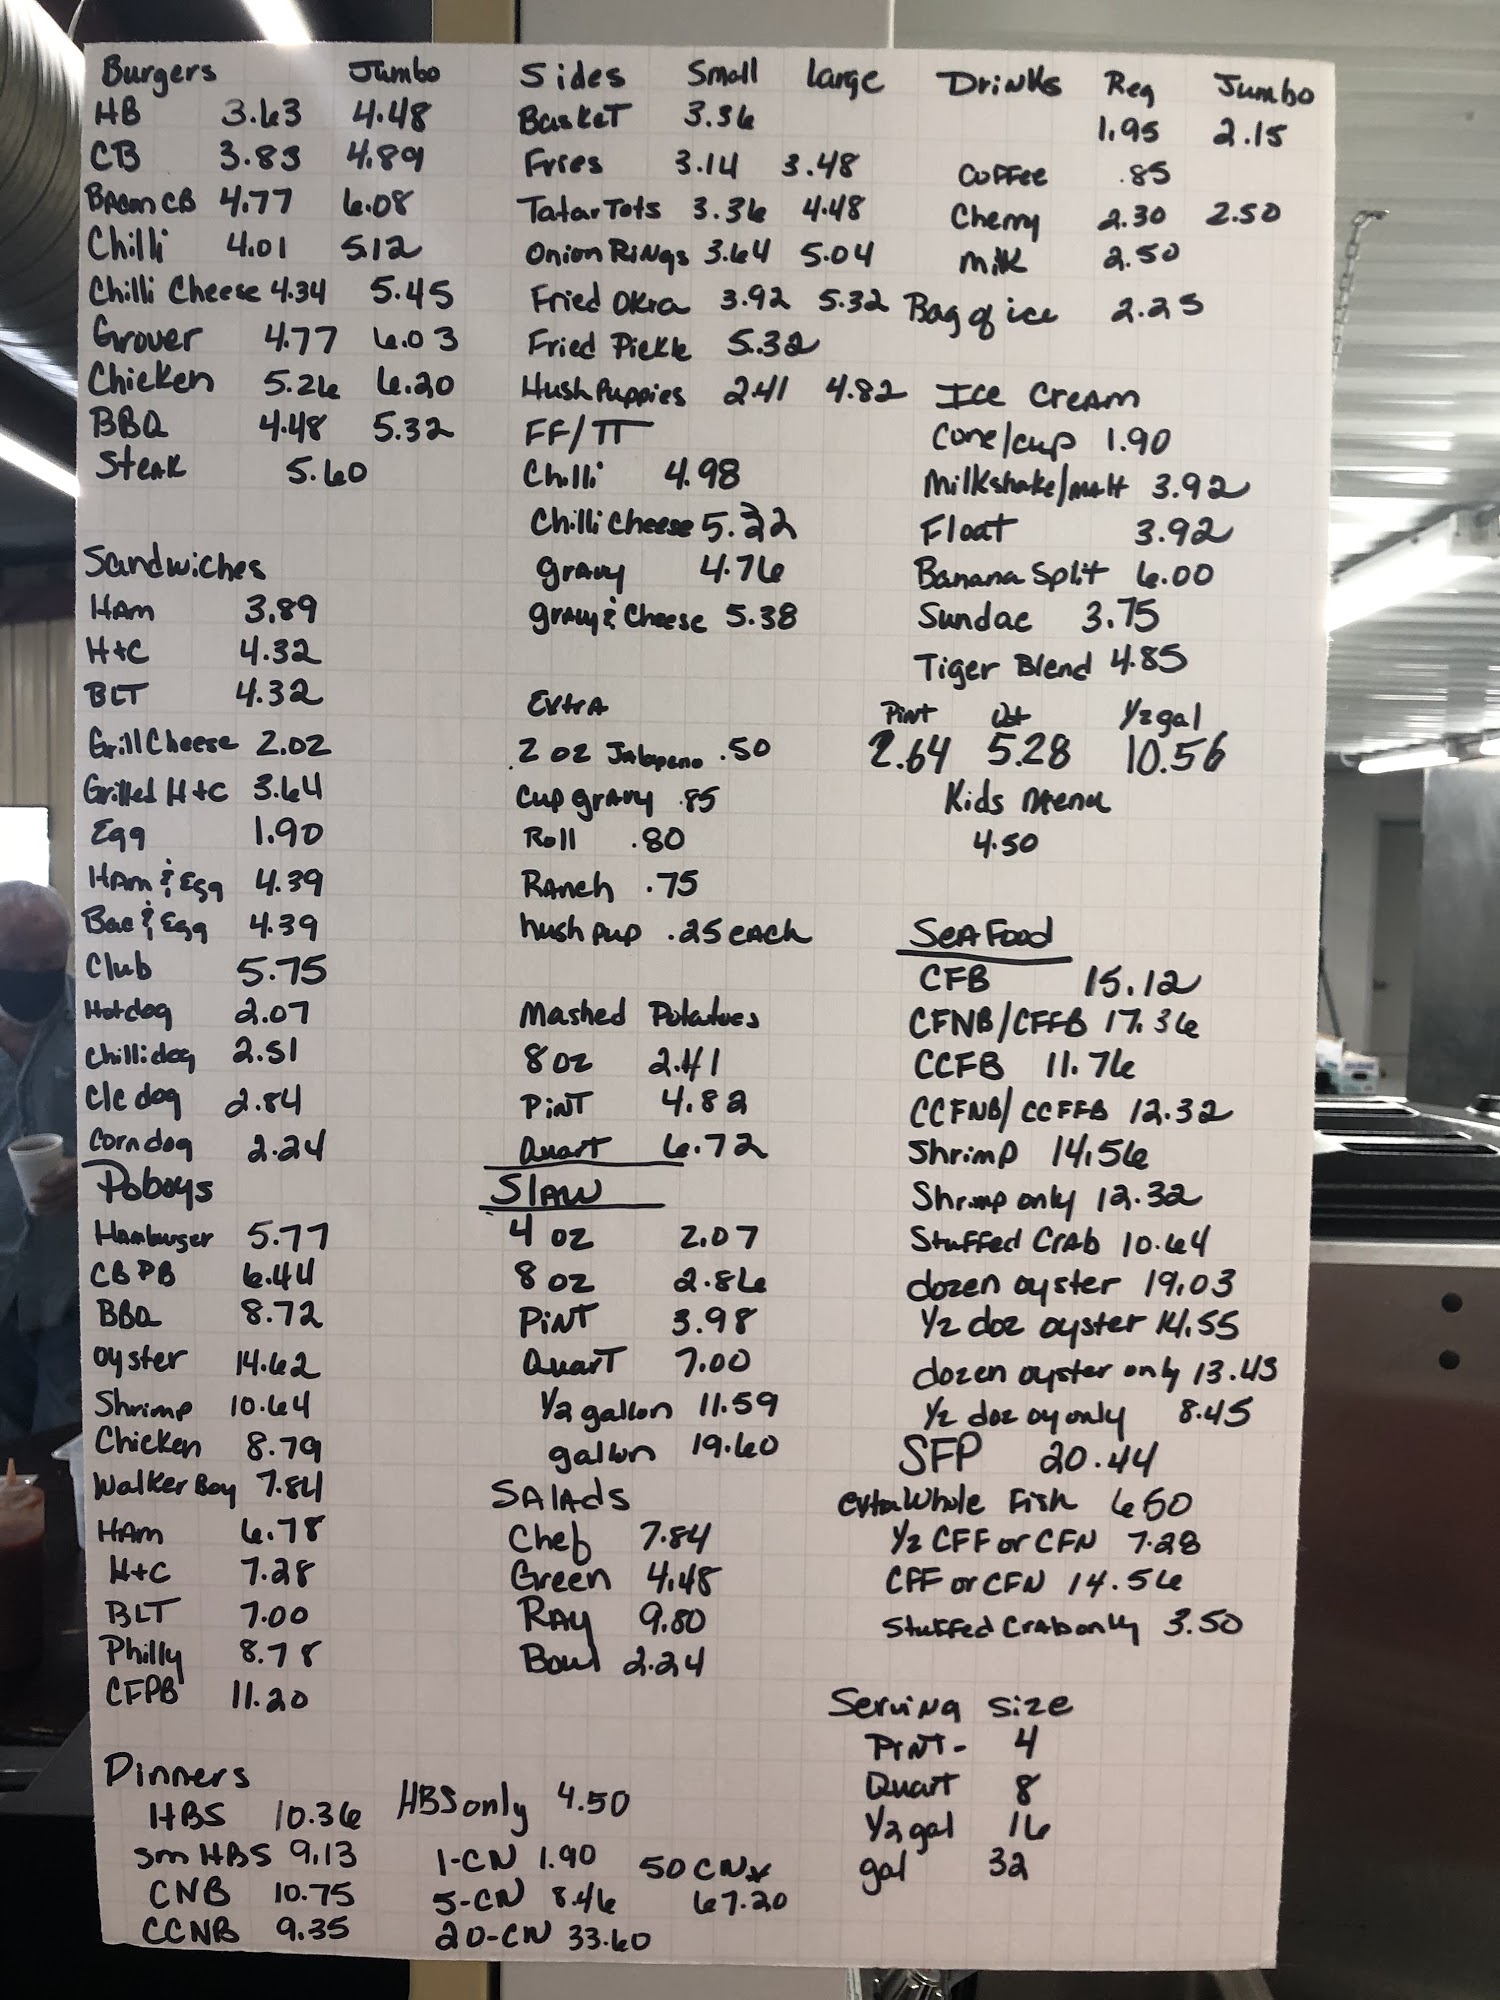 Burgers Jumbo
HB 3.63 4.48
CB 3.83 4.89
Bacon CB 4.77 6.08
Chilli 4.01 5.12
Chilli Cheese 4.34 5.45
Grover 4.77 6.03
Chicken 5.26 6.20
BBQ 4.48 5.32
Steak 5.60
Sandwiches
Ham 3.89
H+C 4.32
BLT 4.32
Grill Cheese 2.02
Grilled H+C 3.64
Egg 1.90
Ham & Egg 4.39
Bac & Egg 4.39
Club 5.75
Hotdog 2.07
Chillidog 2.51
Clc dog 2.84
Corndog 2.24
Poboys
Hamburger 5.77
CBPB 6.44
BBQ 8.72
Oyster 14.62
Shrimp 10.64
Chicken 8.79
Walker Boy 7.84
Ham 6.78
H+C 7.28
BLT 7.00
Philly 8.78
CFPB 11.20
Dinners
HBS 10.36
sm HBS 9.13
CNB 10.75
CCNB 9.35
HBS only 4.50
1-CN 1.90
5-CN 8.46
20-CN 33.60
50 CN
67.20
Sides Small large
Basket 3.36
Fries 3.14 3.48
Tatar Tots 3.36 4.48
Onion Rings 3.64 5.04
Fried Okra 3.92 5.32
Fried Pickle 5.32
Hush Puppies 2.41 4.82
FF/TT
Chilli 4.98
Chilli Cheese 5.32
gravy 4.76
gravy & Cheese 5.38
Extra
2 oz Jalapeno .50
Cup gravy .85
Roll .80
Ranch .75
hush pup .25 each
Mashed Potatoes
8 oz 2.41
Pint 4.82
Quart 6.72
Slaw
4 oz 2.07
8 oz 2.86
Pint 3.98
Quart 7.00
1/2 gallon 11.59
gallon 19.60
Salads
Chef 7.84
Green 4.48
Ray 9.80
Bowl 2.24
Drinks Reg Jumbo
1.95 2.15
Coffee .85
Cherry 2.30 2.50
Milk 2.50
Bag of ice 2.25
Ice Cream
Cone/cup 1.90
Milkshake/malt 3.92
Float 3.92
Banana Split 6.00
Sundae 3.75
Tiger Blend 4.85
Pint Qt 1/2 gal
2.64 5.28 10.56
Kids Menu
4.50
Seafood
CFB 15.12
CFNB/CFFB 17.36
CCFB 11.76
CCFNB/CCFFB 12.32
Shrimp 14.56
Shrimp only 12.32
Stuffed Crab 10.64
dozen oyster 19.03
1/2 doz oyster 14.55
dozen oyster only 13.43
1/2 doz oy only 8.45
SFP 20.44
extra Whole Fish 6.50
1/2 CFF or CFN 7.28
CFF or CFN 14.56
Stuffed Crab only 3.50
Serving Size
Pint- 4
Quart 8
1/2 gal 16
gal 32